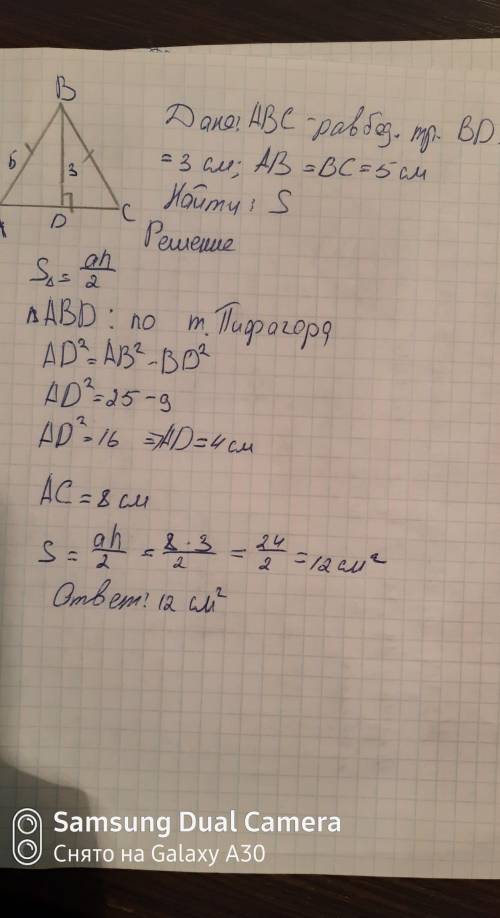 B
Дано: ABC - равбед. тр. BD
= 3 см; AB = BC = 5 см
Найти: S
5
3
A
D
C
Решение
S△ = ah/2
△ABD: по т. Пифагора
AD² = AB² - BD²
AD² = 25 - 9
AD² = 16 ⇒ AD = 4 см
AC = 8 см
S = ah/2 = 8·3/2 = 24/2 = 12 см²
Ответ: 12 см²
Samsung Dual Camera
Снято на Galaxy A30